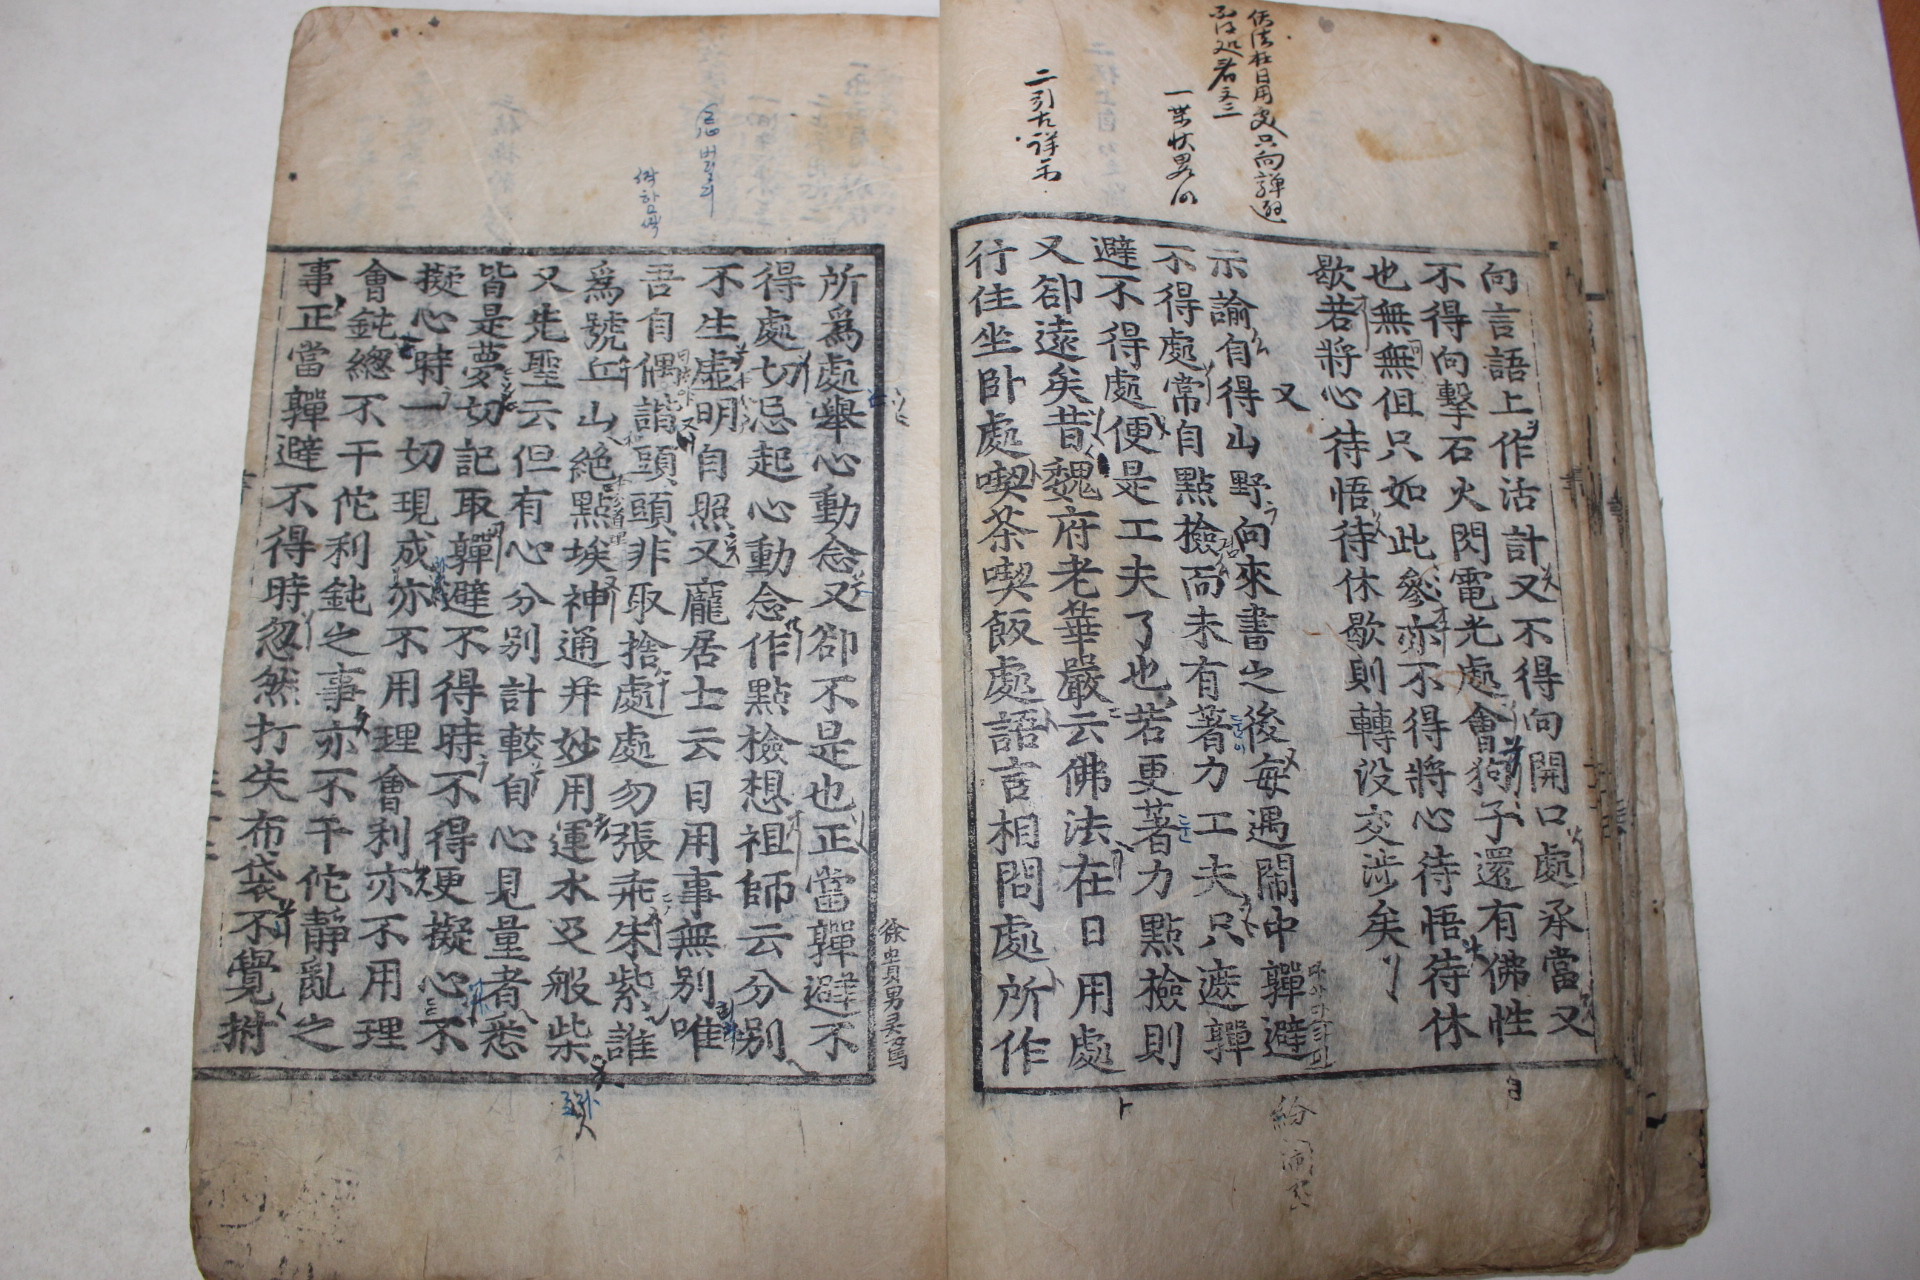 向言語上作活計又不得向開口處承當又
不得向擊石火閃電光處會狗子還有佛性
也無無但只如此參亦不得將心待悟待休
歇若將心待悟待休歇則轉没交涉矣
又
示諭自得山野向來書之後每遇鬧中嚲避
不得處常自點檢而未有著力工夫只遮嚲
避不得處便是工夫了也若更著力點檢則
又卻遠矣昔魏府老華嚴云佛法在日用處
行住坐臥處喫茶喫飯處語言相問處所作
所爲處舉心動念又卻不是也正當嚲避不
得處切忌起心動念作點檢想祖師云分别
不生虛明自照又龐居士云日用事無别唯
吾自偶諧頭頭非取捨處處勿張乖朱紫誰
爲號丘山絶點埃神通并妙用運水及般柴
又先聖云但有心分别計較自心見量者悉
皆是夢切記取嚲避不得時不得更擬心不
擬心時一切現成亦不用理會利亦不用理
會鈍總不干佗利鈍之事亦不干佗靜亂之
事正當嚲避不得時忽然打失布袋不覺拊
二引古詳示